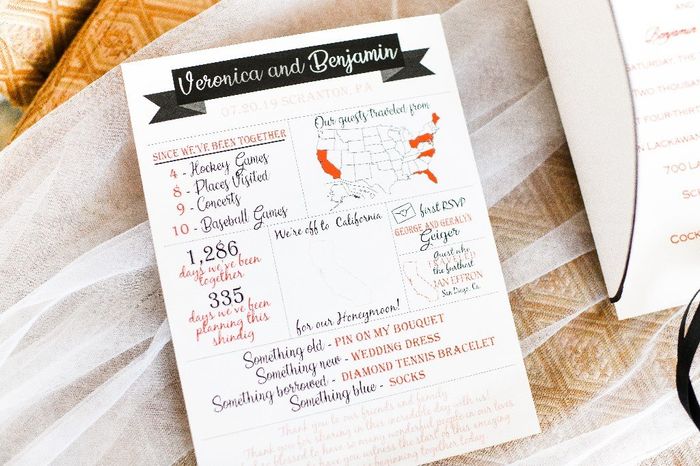 Veronica and Benjamin
07.20.19 SCRANTON, PA
SINCE WE'VE BEEN TOGETHER
4 - Hockey Games
8 - Places Visited
9 - Concerts
10 - Baseball Games
Our guests traveled from
1,286
days we've been
together
335
days we've been
planning this
shindig
We're off to California
for our Honeymoon!
first RSVP
GEORGE AND GERALYN
Geiger
Guest who
TRAVELED
the farthest
IAN EFFRON
San Diego, Ca.
Something old - PIN ON MY BOUQUET
Something new - WEDDING DRESS
Something borrowed - DIAMOND TENNIS BRACELET
Something blue - SOCKS
Thank you to our friends and family
Thank you for sharing in this incredible day with us!
blessed to have so many wonderful people in our lives
have you witness the start of this amazing
beginning together today
AND
Benjamin
SATURDAY, THE
TWO THOUS
FOUR-THI
LACKAW
700 LA
S
COCK